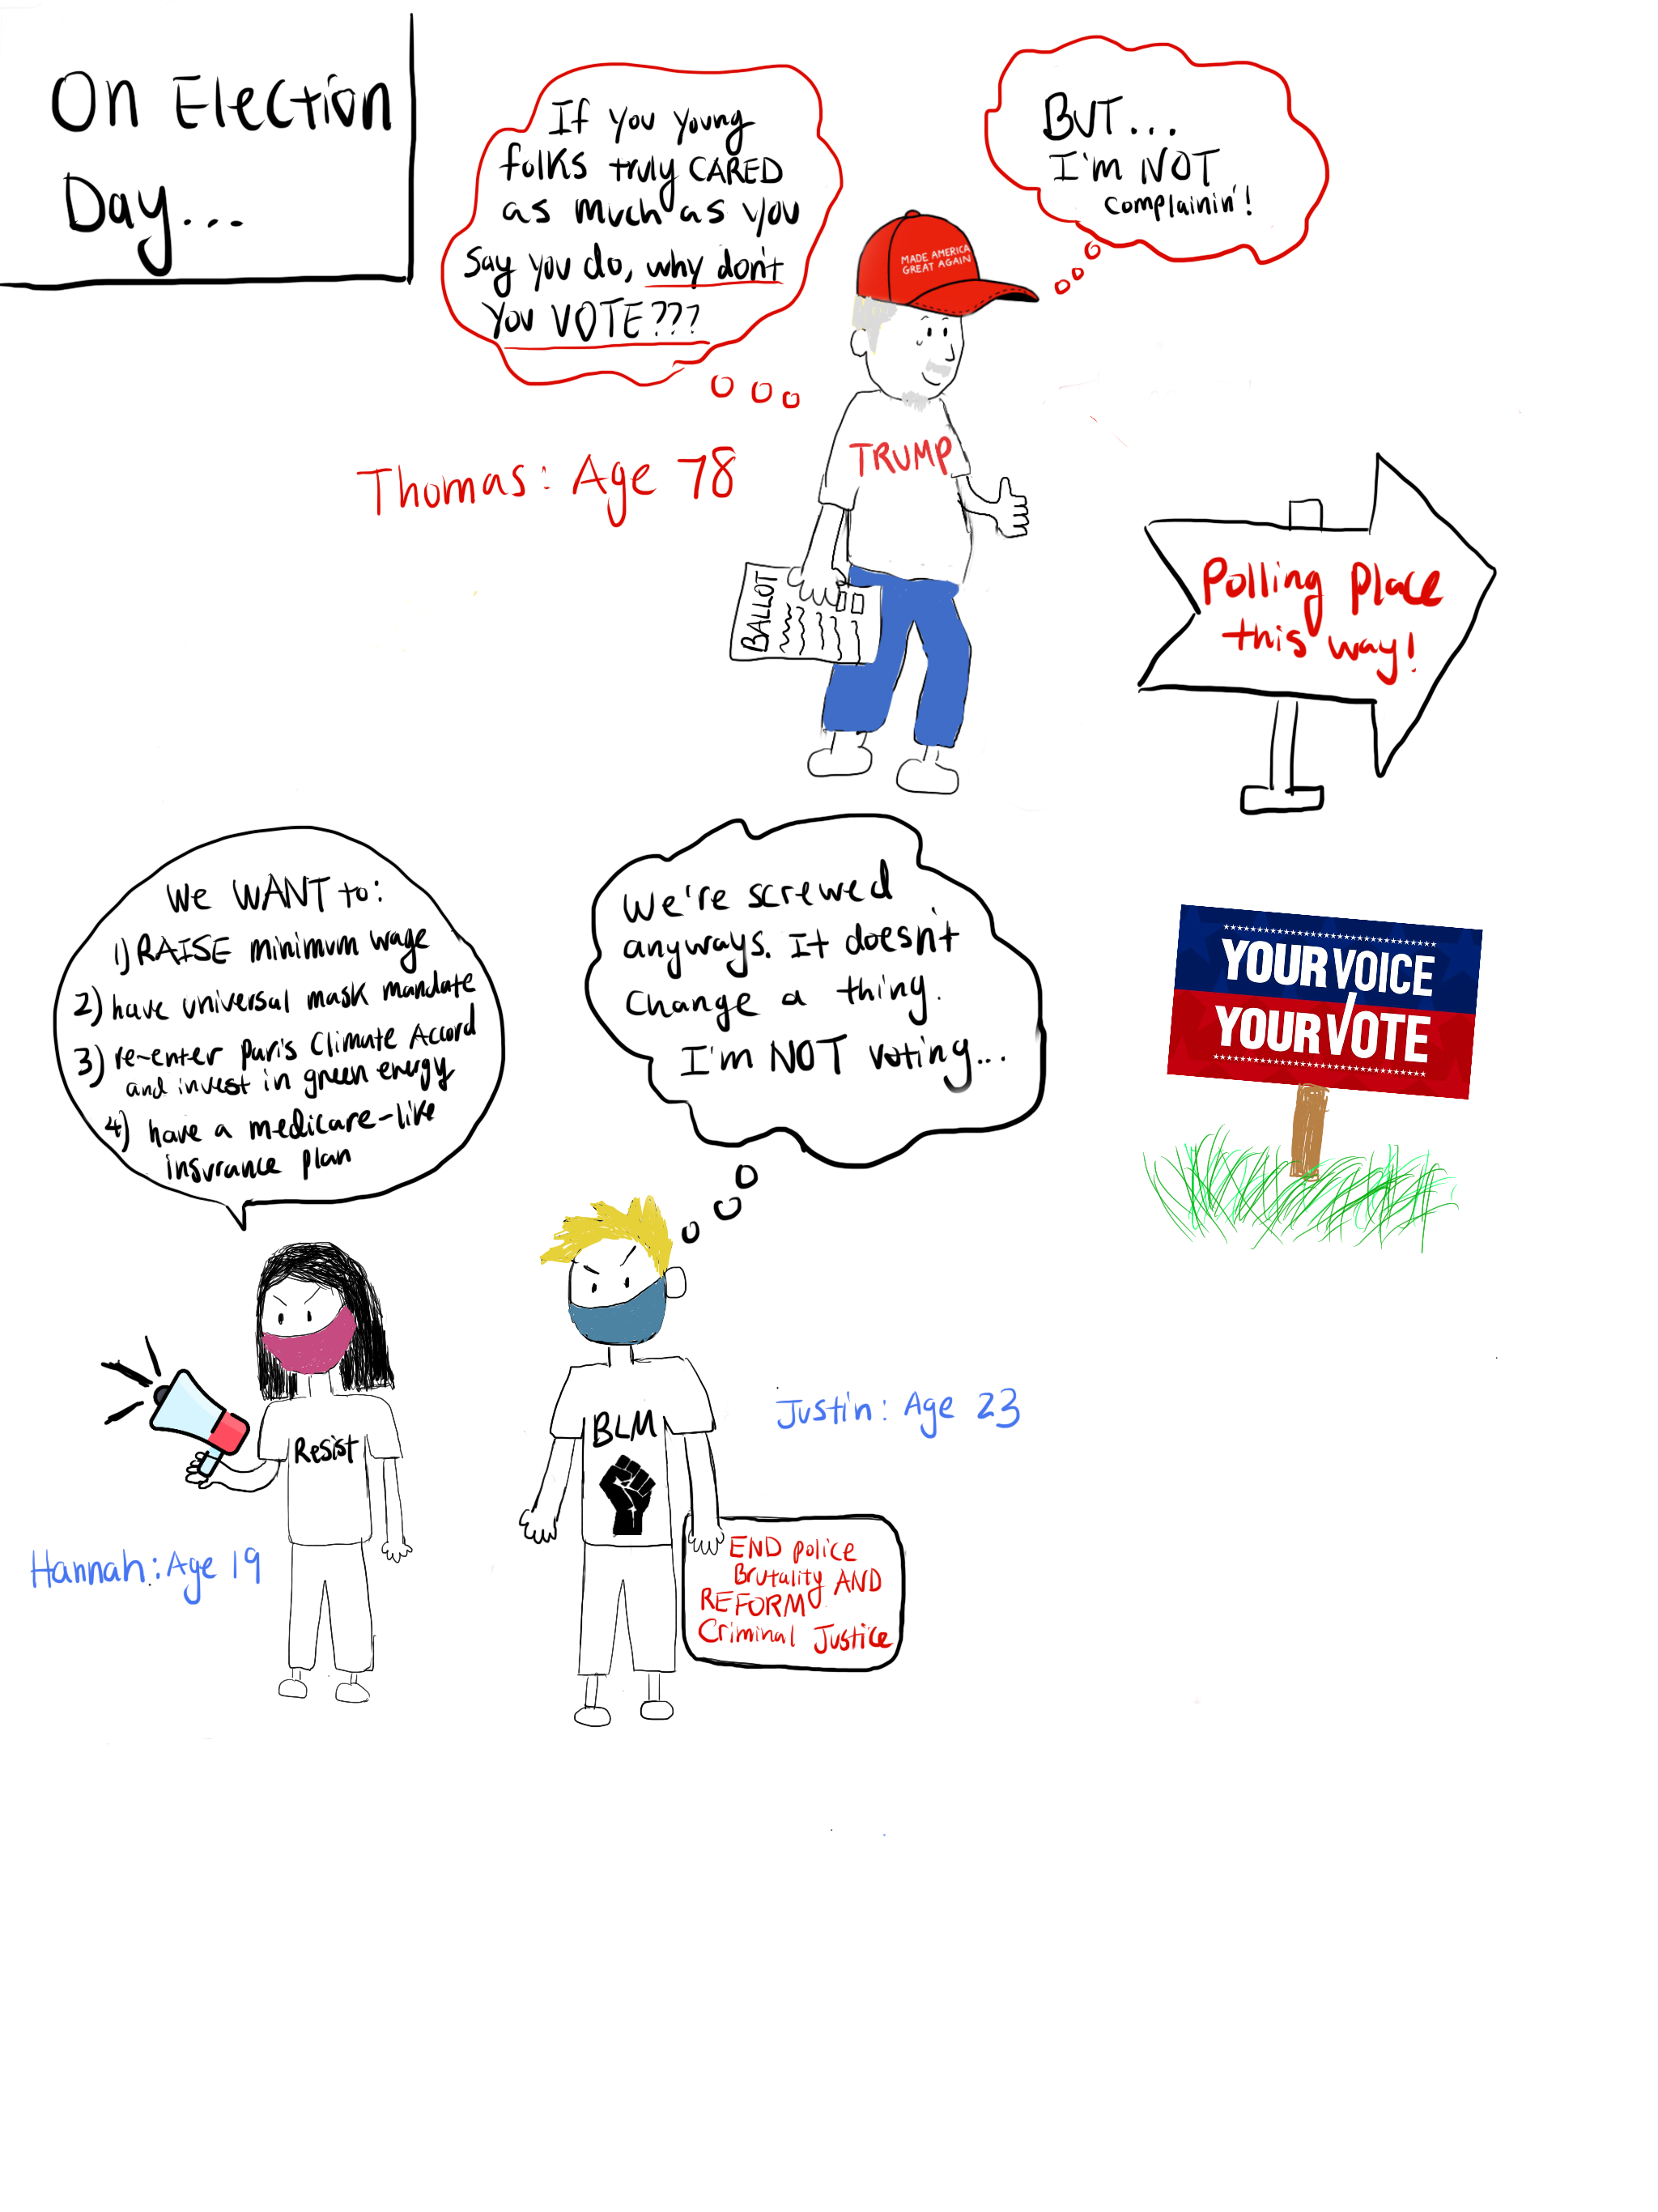 On Election
Day...
If you young
folks truly CARED
as much as you
say you do, why don't
you VOTE???
BUT...
I'm NOT
complainin'!
MADE AMERICA
GREAT AGAIN
TRUMP
Thomas: Age 78
BALLOT
Polling place
this way!
We WANT to:
1) RAISE minimum wage
2) have universal mask mandate
3) re-enter Paris Climate Accord
and invest in green energy
4) have a medicare-like
insurance plan
We're screwed
anyways. It doesn't
change a thing.
I'm NOT voting...
YOUR VOICE
YOUR VOTE
Resist
Hannah: Age 19
BLM
Justin: Age 23
END police
Brutality AND
REFORM
Criminal Justice